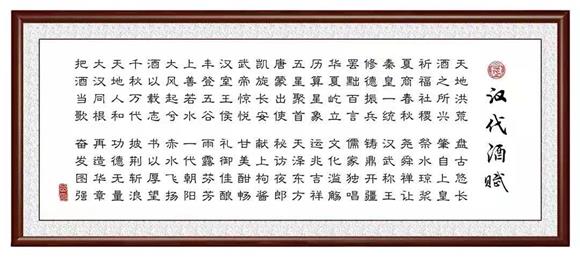 汉代酒赋
天地洪荒 盘古悠长
酒之所兴 肇自上皇
祈福社稷 祭水琼浆
夏商春秋 尧舜禅让
秦皇一统 汉武称王
修德振兵 铸鼎开疆
罢黜百言 儒家独唱
华夏屹立 文化滥觞
历算星象 运兆吉祥
五星聚首 天泽东方
唐蒙出使 秘访夜郎
凯旋长安 献上枸酱
武帝惊悦 甘美酣畅
汉室王侯 礼御佳酿
丰登五谷 雨露芬芳
上善若水 一代朝阳
大风起兮 赤水飞扬
酒以载志 书以厚望
千秋万代 披荆斩浪
天地人和 功德无量
大汉同根 再造华章
把酒当歌 奋发图强